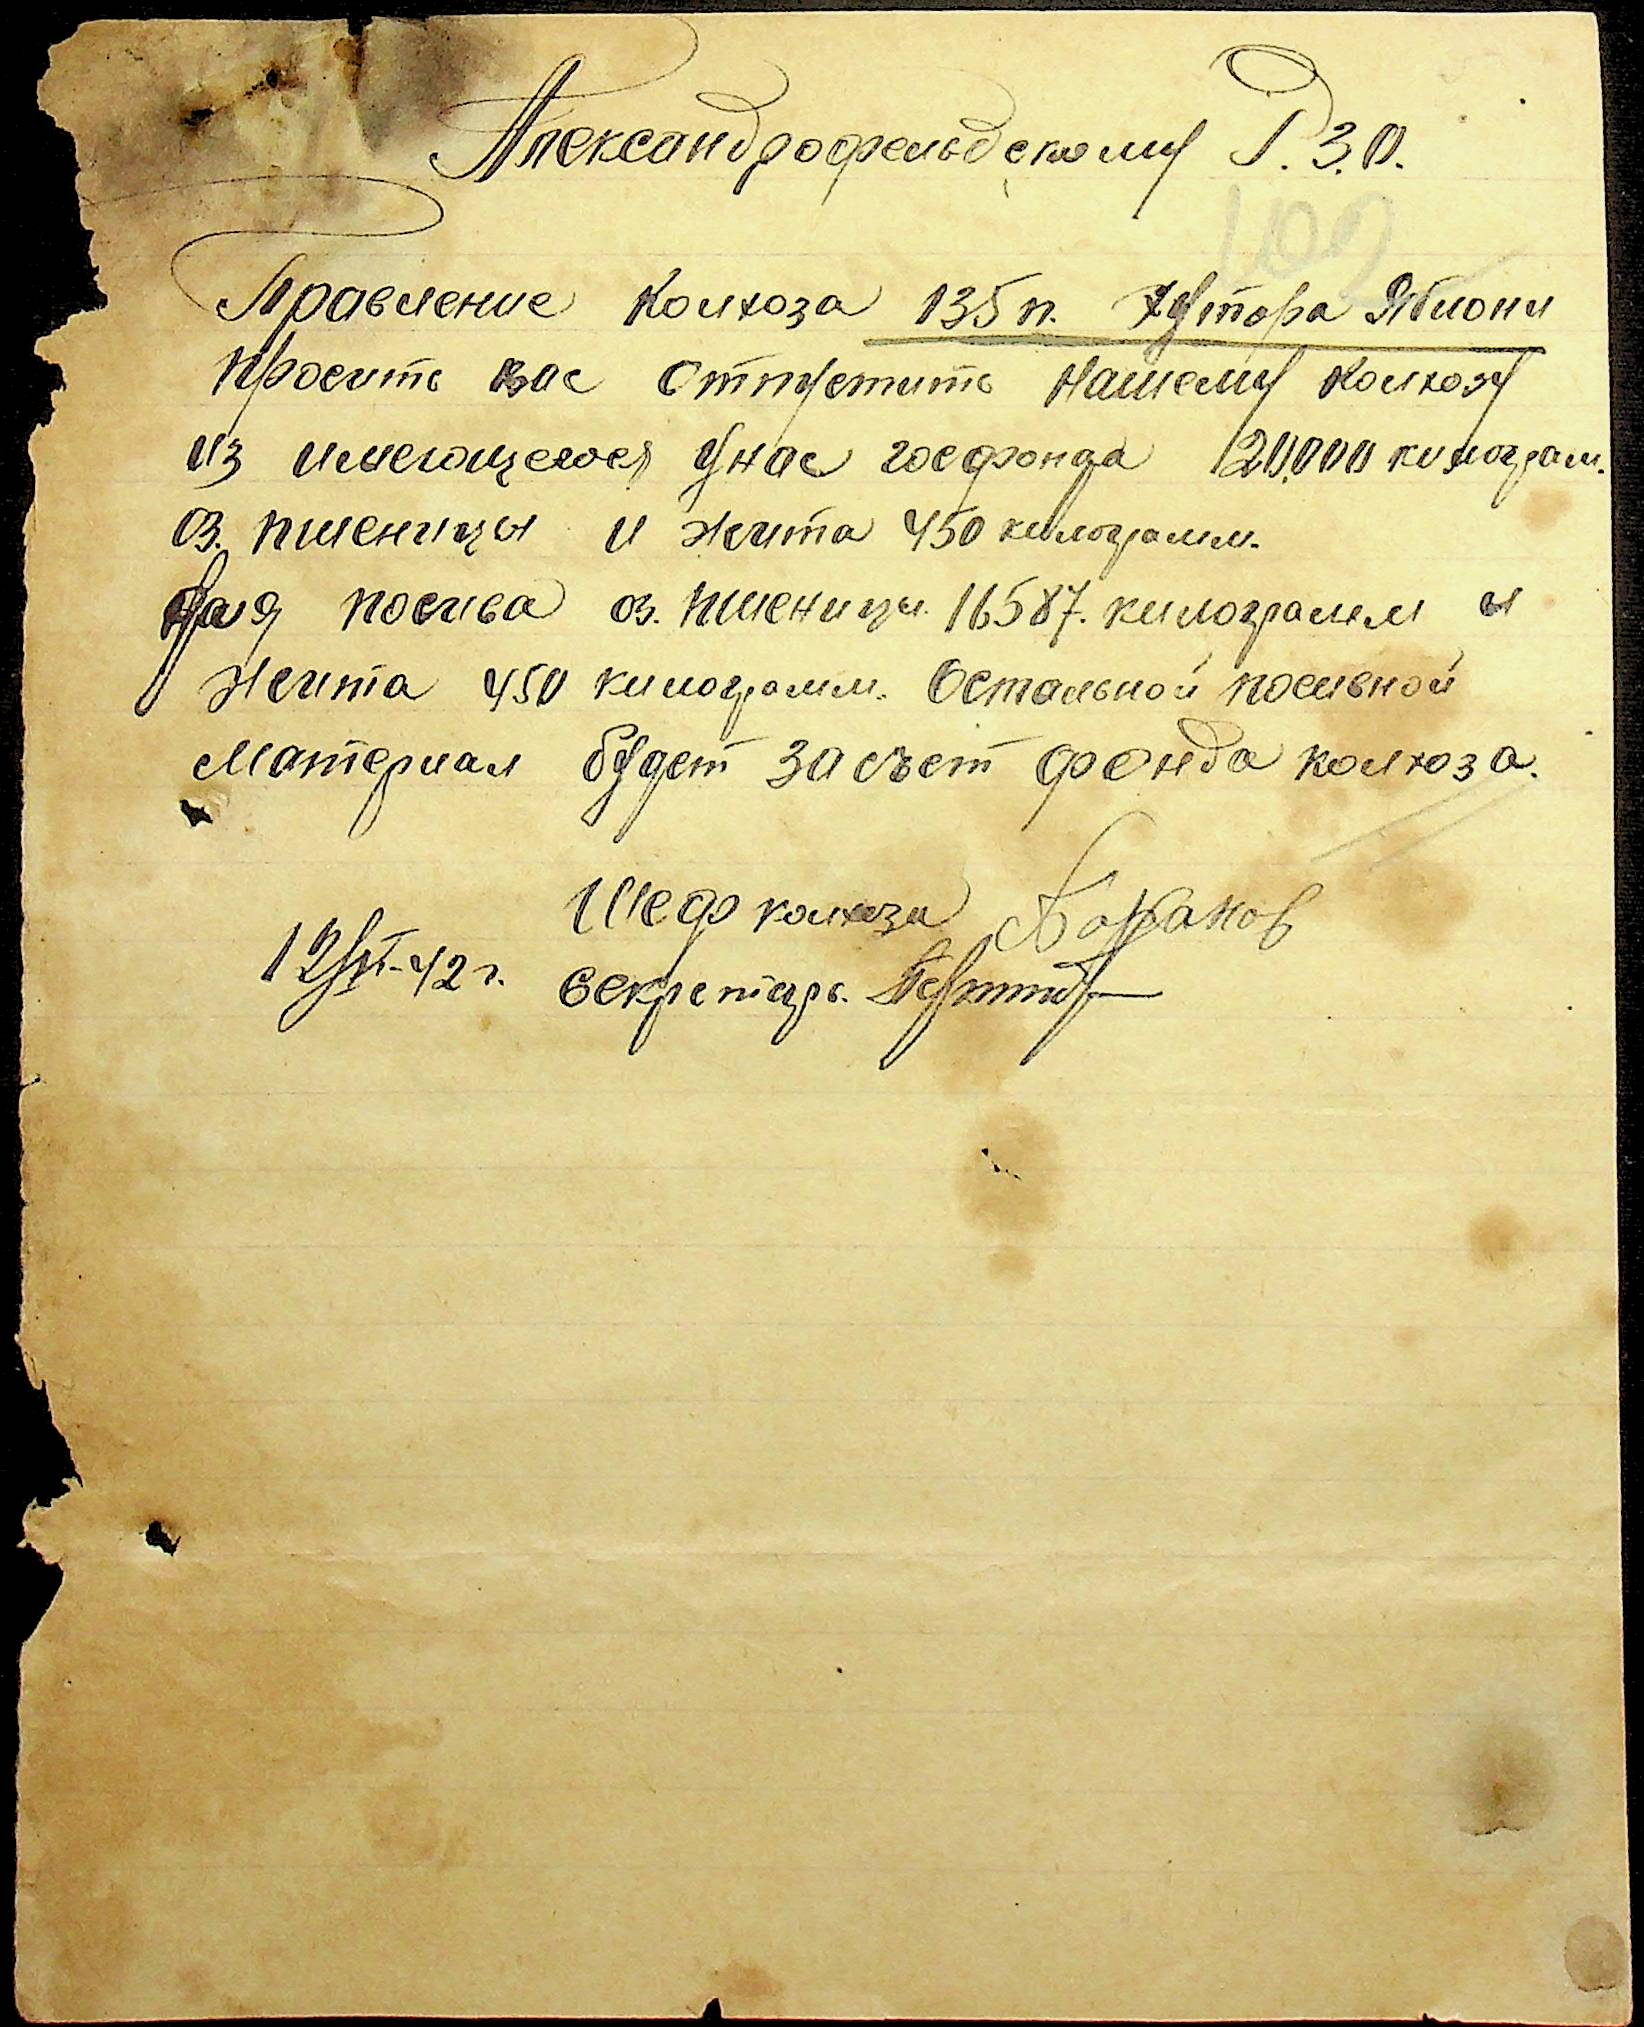 Александрофельдскому Р.З.О.
102
Правление колхоза 135 п. Хутора
Просить вас отпустить нашему колхозу
из имеющегося у нас госфонда 20.000 килограм.
оз. пшеницы и жита 450 килограмм.
Для посива оз. пшеницы. 16587. килограмм и
жита 450 килограмм. Остальной посивной
материал будет за счет фонда колхоза.
Шеф колхоза Баранов
12/IX-42 г. Секретарь.